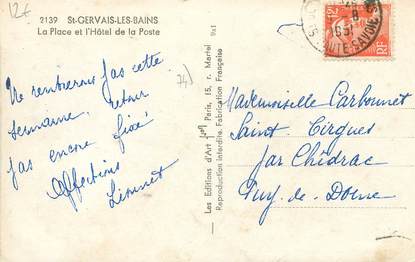 12€
2139 ST-GERVAIS-LES-BAINS
La Place et l'Hôtel de la Poste
Ne rentrerons pas cette
semaine, retour
pas encore fixé
Affections
Lionnet
74)
Les Editions d'Art
Paris, 15, r. Martel 9x1
Reproduction interdite. Fabrication Française
12F
RF
HAUTE-SAVOIE
Mademoiselle Carbonnet
Saint Cirgues
par Chidrac
Puy-de-Dome